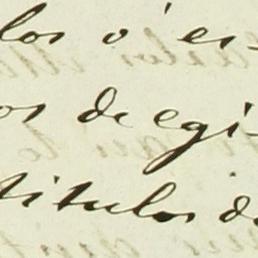 los o' es-
os de egi-
titulos de